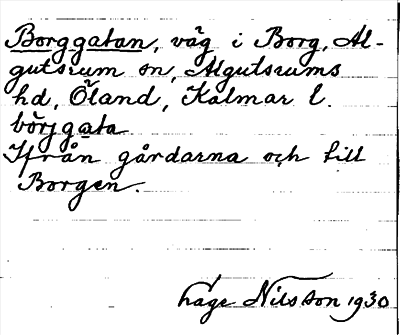 Borggatan, väg i Borg, Al-
gutsrum sn, Algutsrums
hd, Öland, Kalmar l.
bòrjgata
Ifrån gårdarna och till
Borgen.
Åge Nilsson 1930